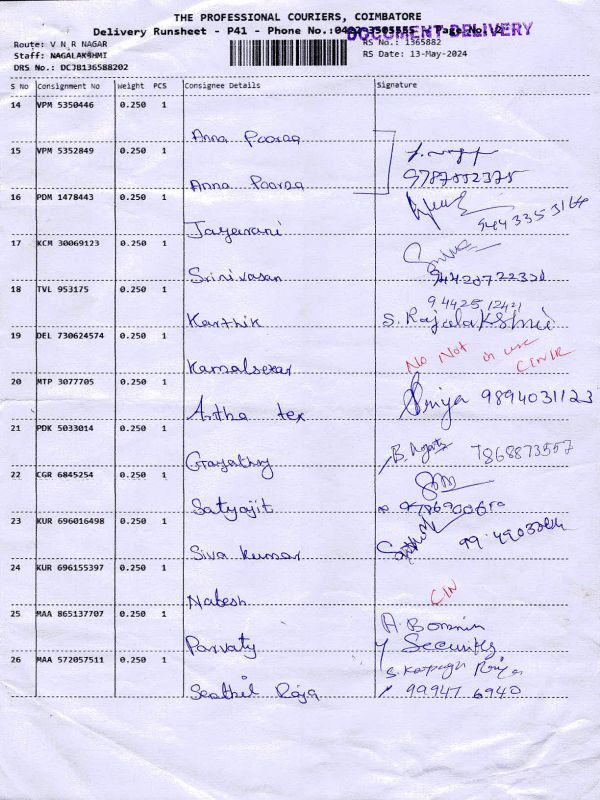 THE PROFESSIONAL COURIERS, COIMBATORE
Delivery Runsheet - P41 - Phone No.:0422 3505555 Page No. 2
DOCUMENT DELIVERY
Route: V N R NAGAR
RS No.: 1365882
Staff: NAGALAKSHMI
RS Date: 13-May-2024
DRS No.: DCJB136588202
S No Consignment No Weight PCS Consignee Details Signature
14 VPM 5350446 0.250 1
Anna Pooraa
15 VPM 5352849 0.250 1
Anna Pooraa
16 PDM 1478443 0.250 1
Jayarani
17 KCM 30069123 0.250 1
Srinivasan
18 TVL 953175 0.250 1
Karthik S. Rajalakshmi
19 DEL 730624574 0.250 1
No Not in use
Kamalsekar
20 MTP 3077705 0.250 1
Artha tex Priya 9894031123
21 PDK 5033014 0.250 1
Gayathry 7868873557
22 CGR 6845254 0.250 1
Satyajit
23 KUR 696016498 0.250 1
Siva kumar
24 KUR 696155397 0.250 1
Natesh
25 MAA 865137707 0.250 1
Parvaty Security
26 MAA 572057511 0.250 1
Senthil Raja 99947 6940